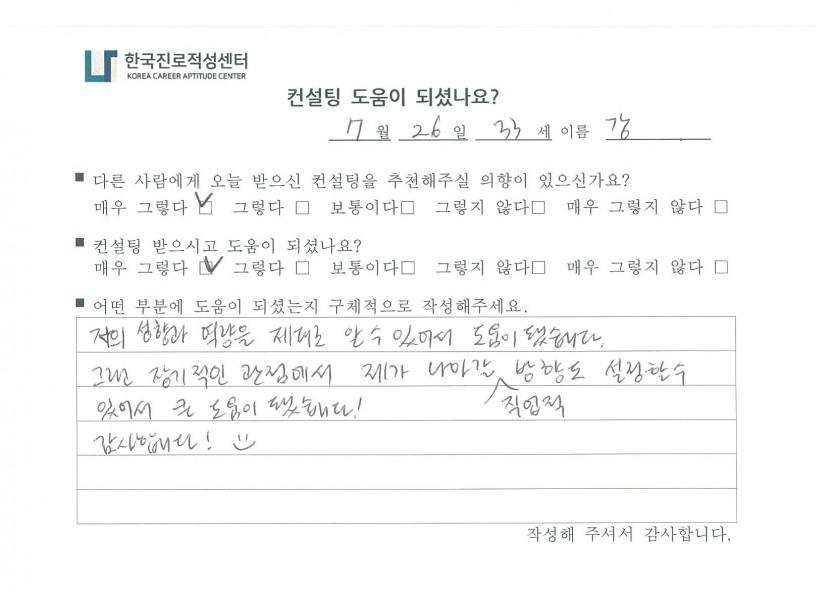 한국진로적성센터
KOREA CAREER APTITUDE CENTER
컨설팅 도움이 되셨나요?
7 월 26 일 33 세 이름 강
■ 다른 사람에게 오늘 받으신 컨설팅을 추천해주실 의향이 있으신가요?
매우 그렇다 ☑ 그렇다 □ 보통이다□ 그렇지 않다□ 매우 그렇지 않다 □
■ 컨설팅 받으시고 도움이 되셨나요?
매우 그렇다 ☑ 그렇다 □ 보통이다□ 그렇지 않다□ 매우 그렇지 않다 □
■ 어떤 부분에 도움이 되셨는지 구체적으로 작성해주세요.
저의 성향과 역량을 제대로 알 수 있어서 도움이 됐습니다.
그리고 장기적인 관점에서 제가 나아갈 직업적 방향도 설정할 수
있어서 큰 도움이 됐습니다!
감사합니다!
작성해 주셔서 감사합니다.